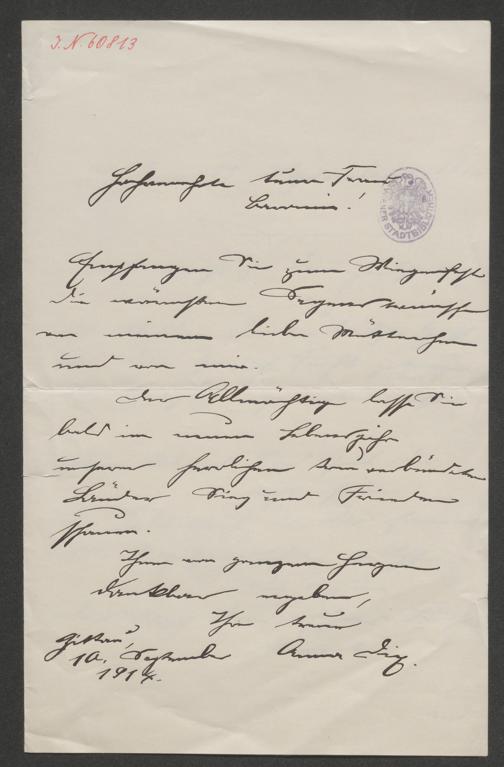 J.N. 60813
Hochverehrte teure Frau
Baronin!
WIENER STADTBIBLIOTHEK
Empfangen Sie zum Wiegenfeste
die wärmsten Segenswünsche
von meinem lieben Mütterchen
und von mir.
Der Allmächtige lasse Sie
bald im neuen Lebensjahr
unserer herrlichen treu verbündeten
Länder Sieg und Frieden
schauen.
Ihnen von ganzem Herzen
dankbar ergeben,
Ihre treue
Zittau,
10. September Anna Dix.
1914.